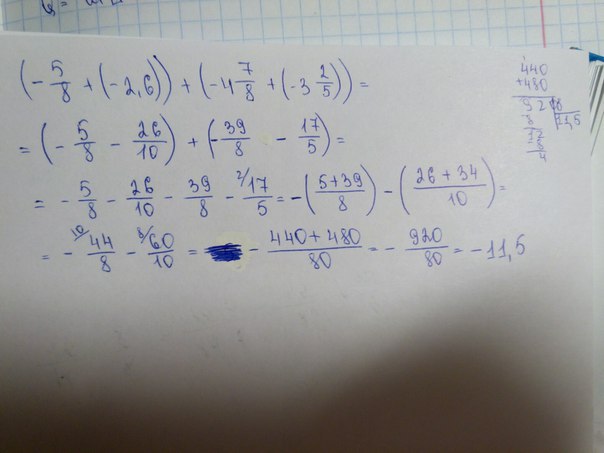 (-5/8 + (-2,6)) + (-4 7/8 + (-3 2/5)) =
= (-5/8 - 26/10) + (-39/8 - 17/5) =
= -5/8 - 26/10 - 39/8 - 2/17/5 = -(5+39/8) - (26+34/10) =
= - 10/44/8 - 8/60/10 = - 440+480/80 = - 920/80 = -11,5
440
+480
920 8
8 11,5
12
-8
4